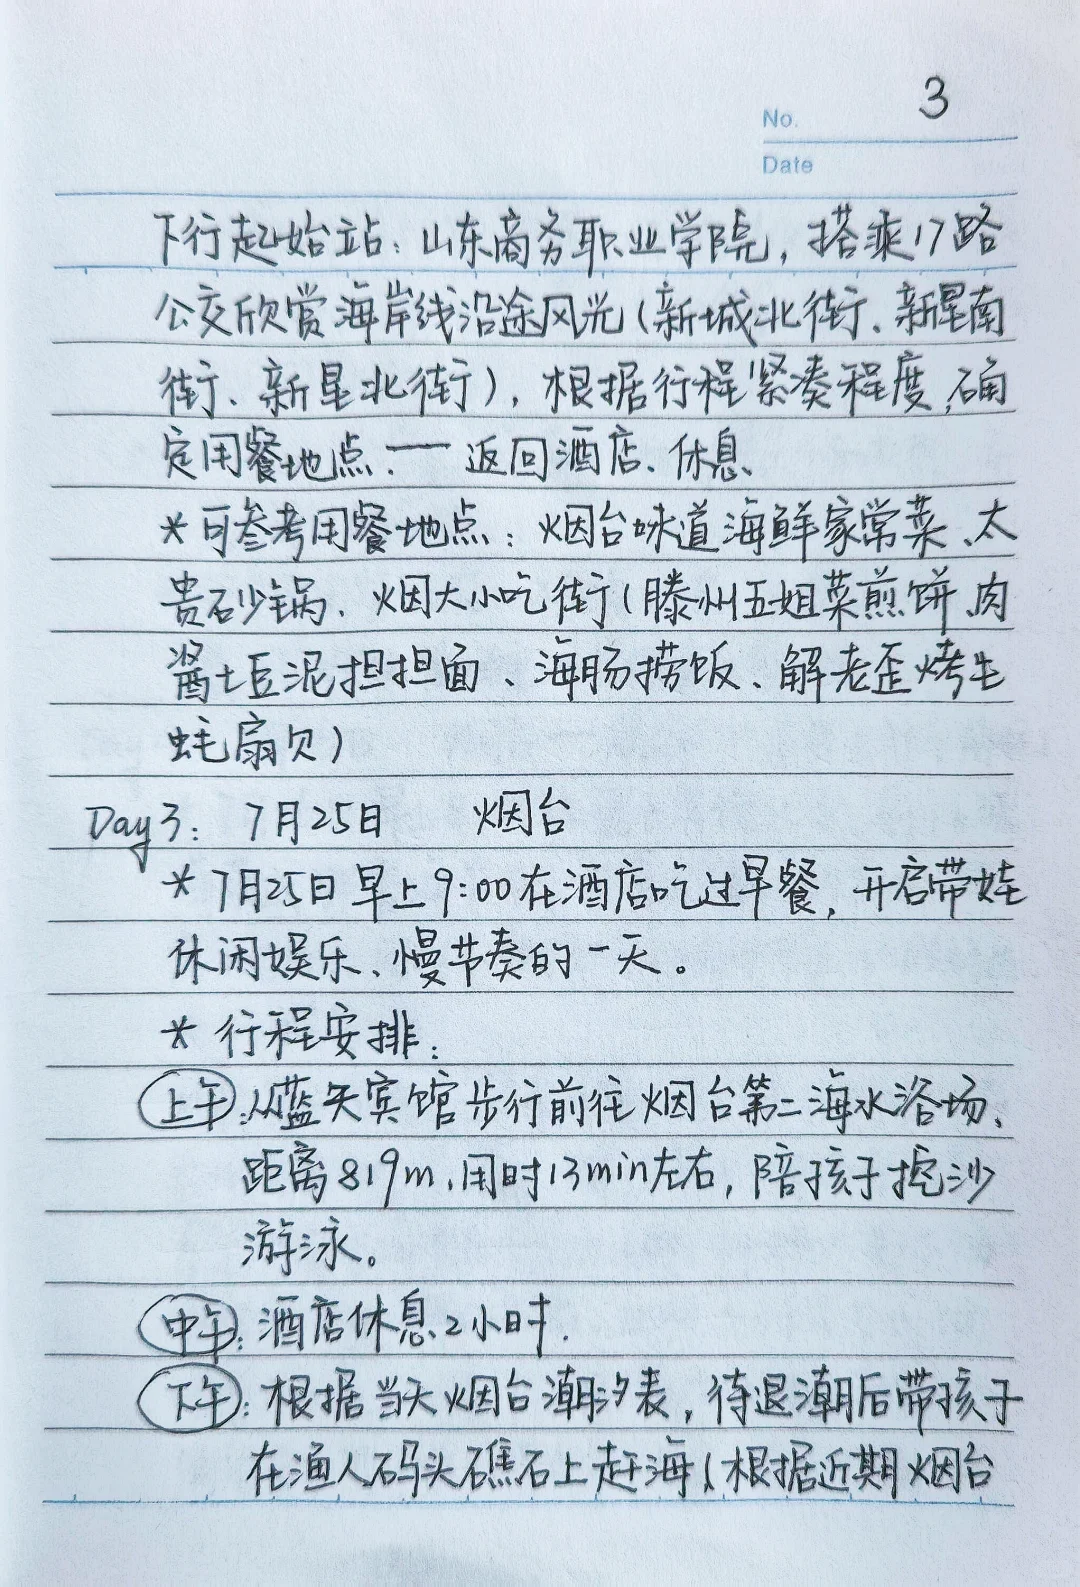 3
No.
Date
下行起始站：山东商务职业学院，搭乘17路
公交欣赏海岸线沿途风光(新城北街、新星南
街、新星北街)，根据行程紧凑程度，确
定用餐地点.——返回酒店、休息
*可参考用餐地点：烟台味道海鲜家常菜、太
贵砂锅、烟大小吃街(滕州五姐菜煎饼、肉
酱土豆泥担担面、海肠捞饭、解老歪烤生
蚝扇贝)
Day3：7月25日 烟台
*7月25日早上9:00在酒店吃过早餐，开启带娃
休闲娱乐、慢节奏的一天。
*行程安排：
上午：从蓝天宾馆步行前往烟台第二海水浴场、
距离819m，用时13min左右，陪孩子挖沙
游泳。
中午：酒店休息2小时.
下午：根据当天烟台潮汐表，待退潮后带孩子
在渔人码头礁石上赶海(根据近期烟台